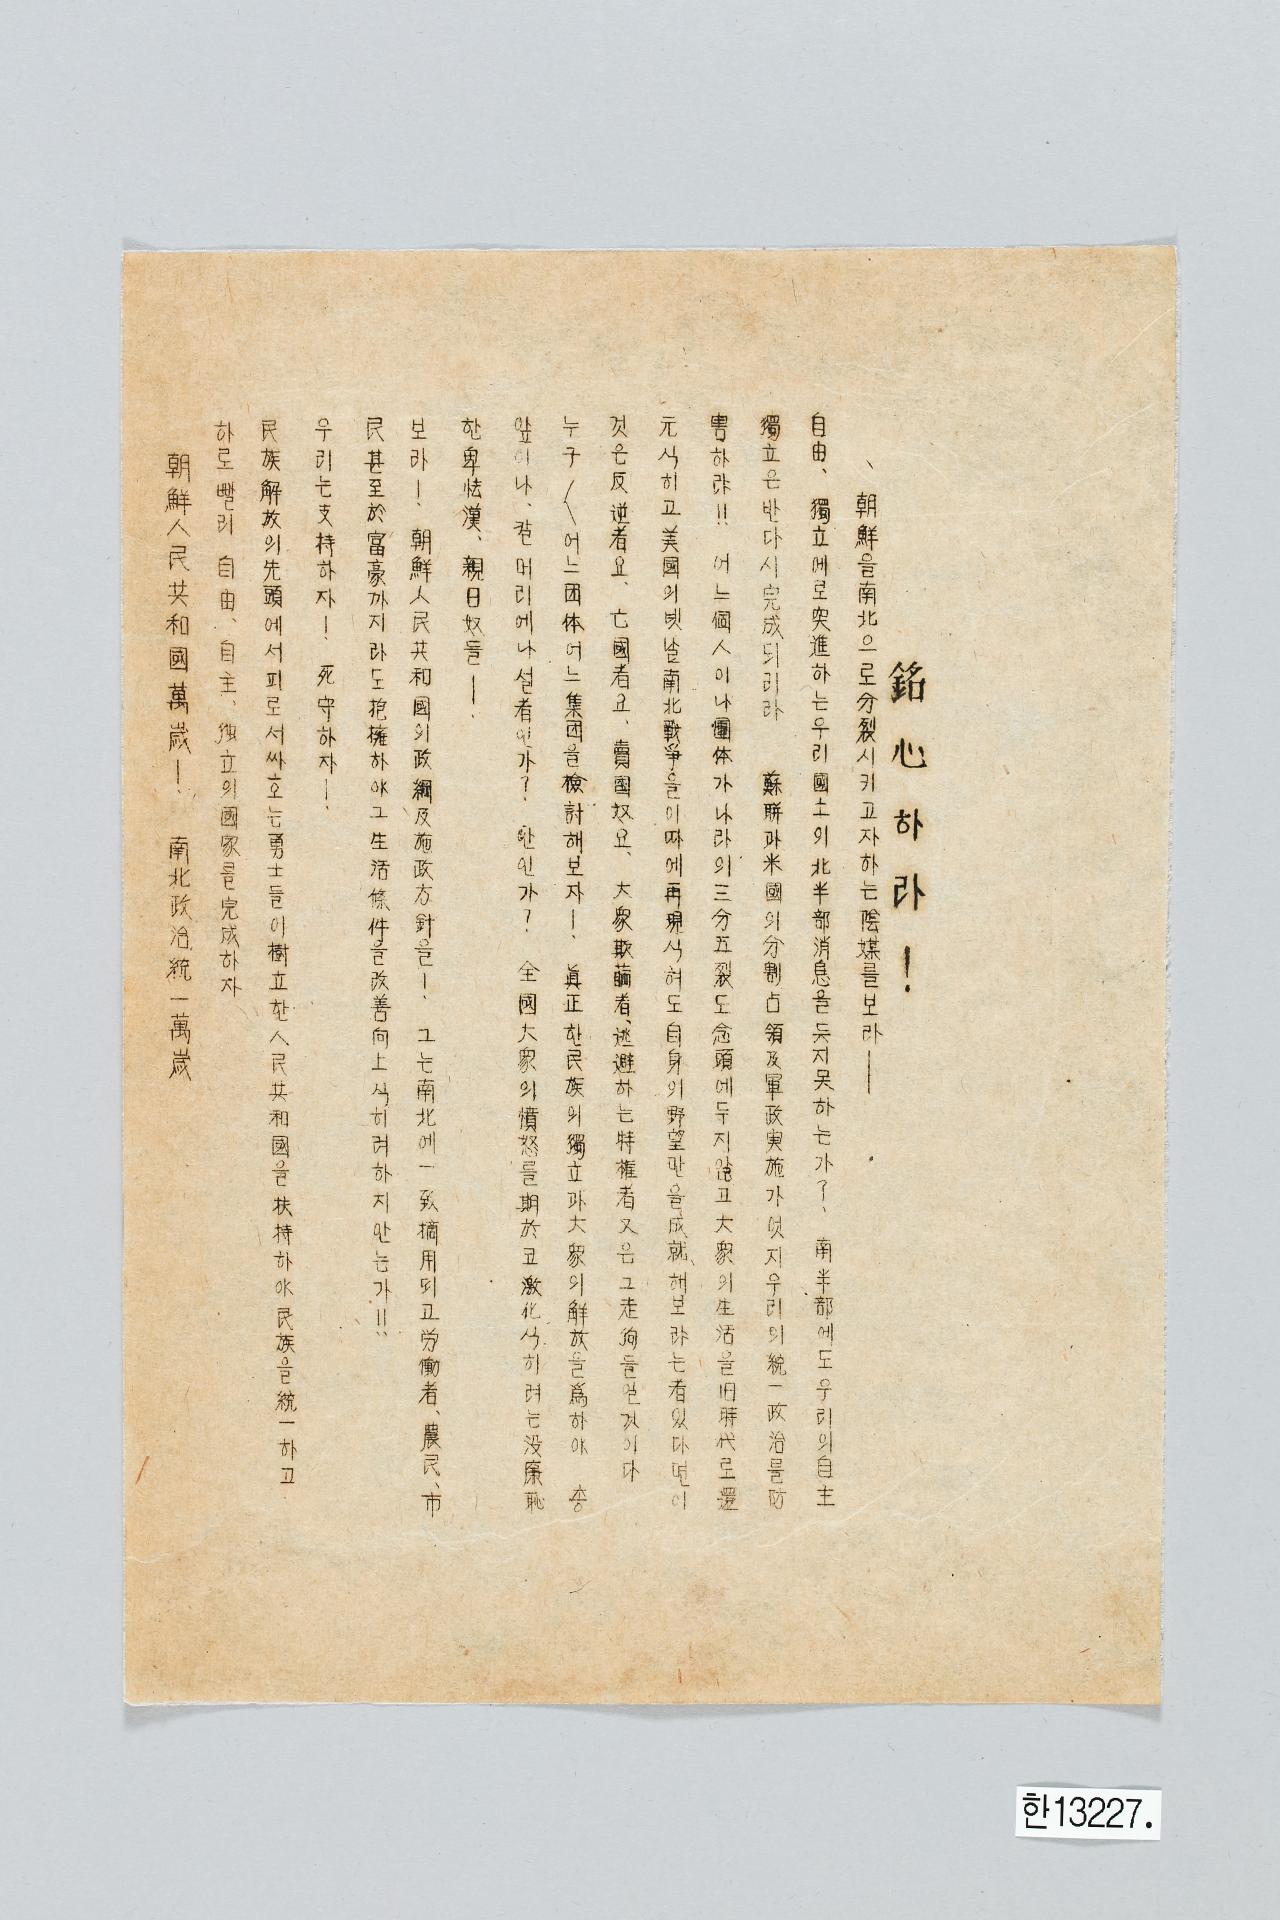 銘心하라!
、朝鮮을南北으로分裂시키고자하는陰媒를보라——
自由、獨立에로突進하는우리國土의北半部消息을듯지못하는가?、南半部에도우리의自主
獨立은반다시完成되리라 蘇聯과米國의分割占領及軍政実施가엇지우리의統一政治를防
害하랴!! 어느個人이나團体가나라의三分五裂도念頭에두지안코大衆의生活을旧時代로還
元식히고美國의녯날南北戰爭을이따에再現식혀도自身의野望만을成就해보랴는者있다면이
것은反逆者요、亡國者요、賣国奴요、大衆欺瞞者、逃避하는特権者又은그走狗들일것이다
누구〱어느団体어느集団을檢討해보자—、眞正한民族의獨立과大衆의解放을爲하야 총
앞이나、칼머리에나설者인가?、안인가? 全國大衆의憤怒를期於코激化식히려는没廉恥
한卑怯漢、親日奴들—、
보라—、朝鮮人民共和國의政綱及施政方針을—、그는南北에一致摘用되고労働者、農民、市
民甚至於富豪까지라도抱擁하야그生活條件을改善向上식히려하지안는가!!、
우리는支持하자—、死守하자—、
民族解放의先頭에서피로서싸호는勇士들이樹立한人民共和國을扶持하야民族을統一하고
하로빨리 自由、自主、独立의國家를完成하자
朝鮮人民共和國萬歲—、 南北政治統一萬歲
한13227.